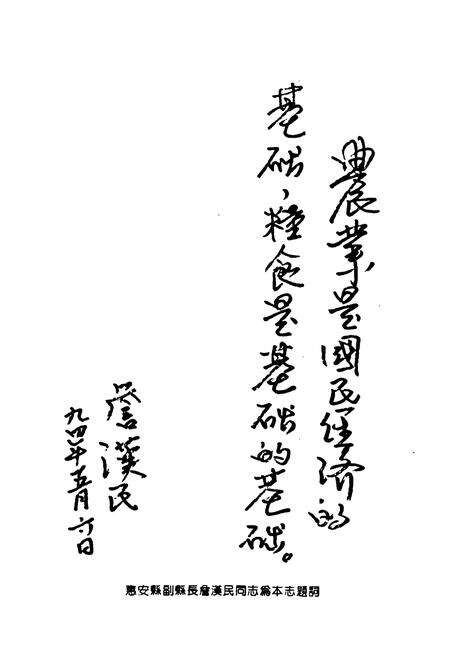 農業是國民經济的
基础，糧食是基础的基础。
詹漢民
九四年五月六日
惠安縣副縣長詹漢民同志為本志題詞